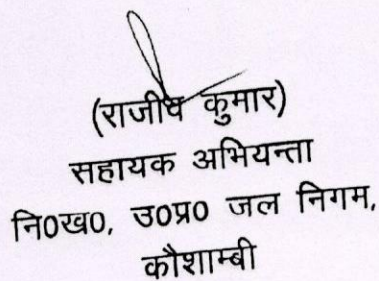 (राजीव कुमार)
सहायक अभियन्ता
नि0ख0, उ0प्र0 जल निगम,
कौशाम्बी